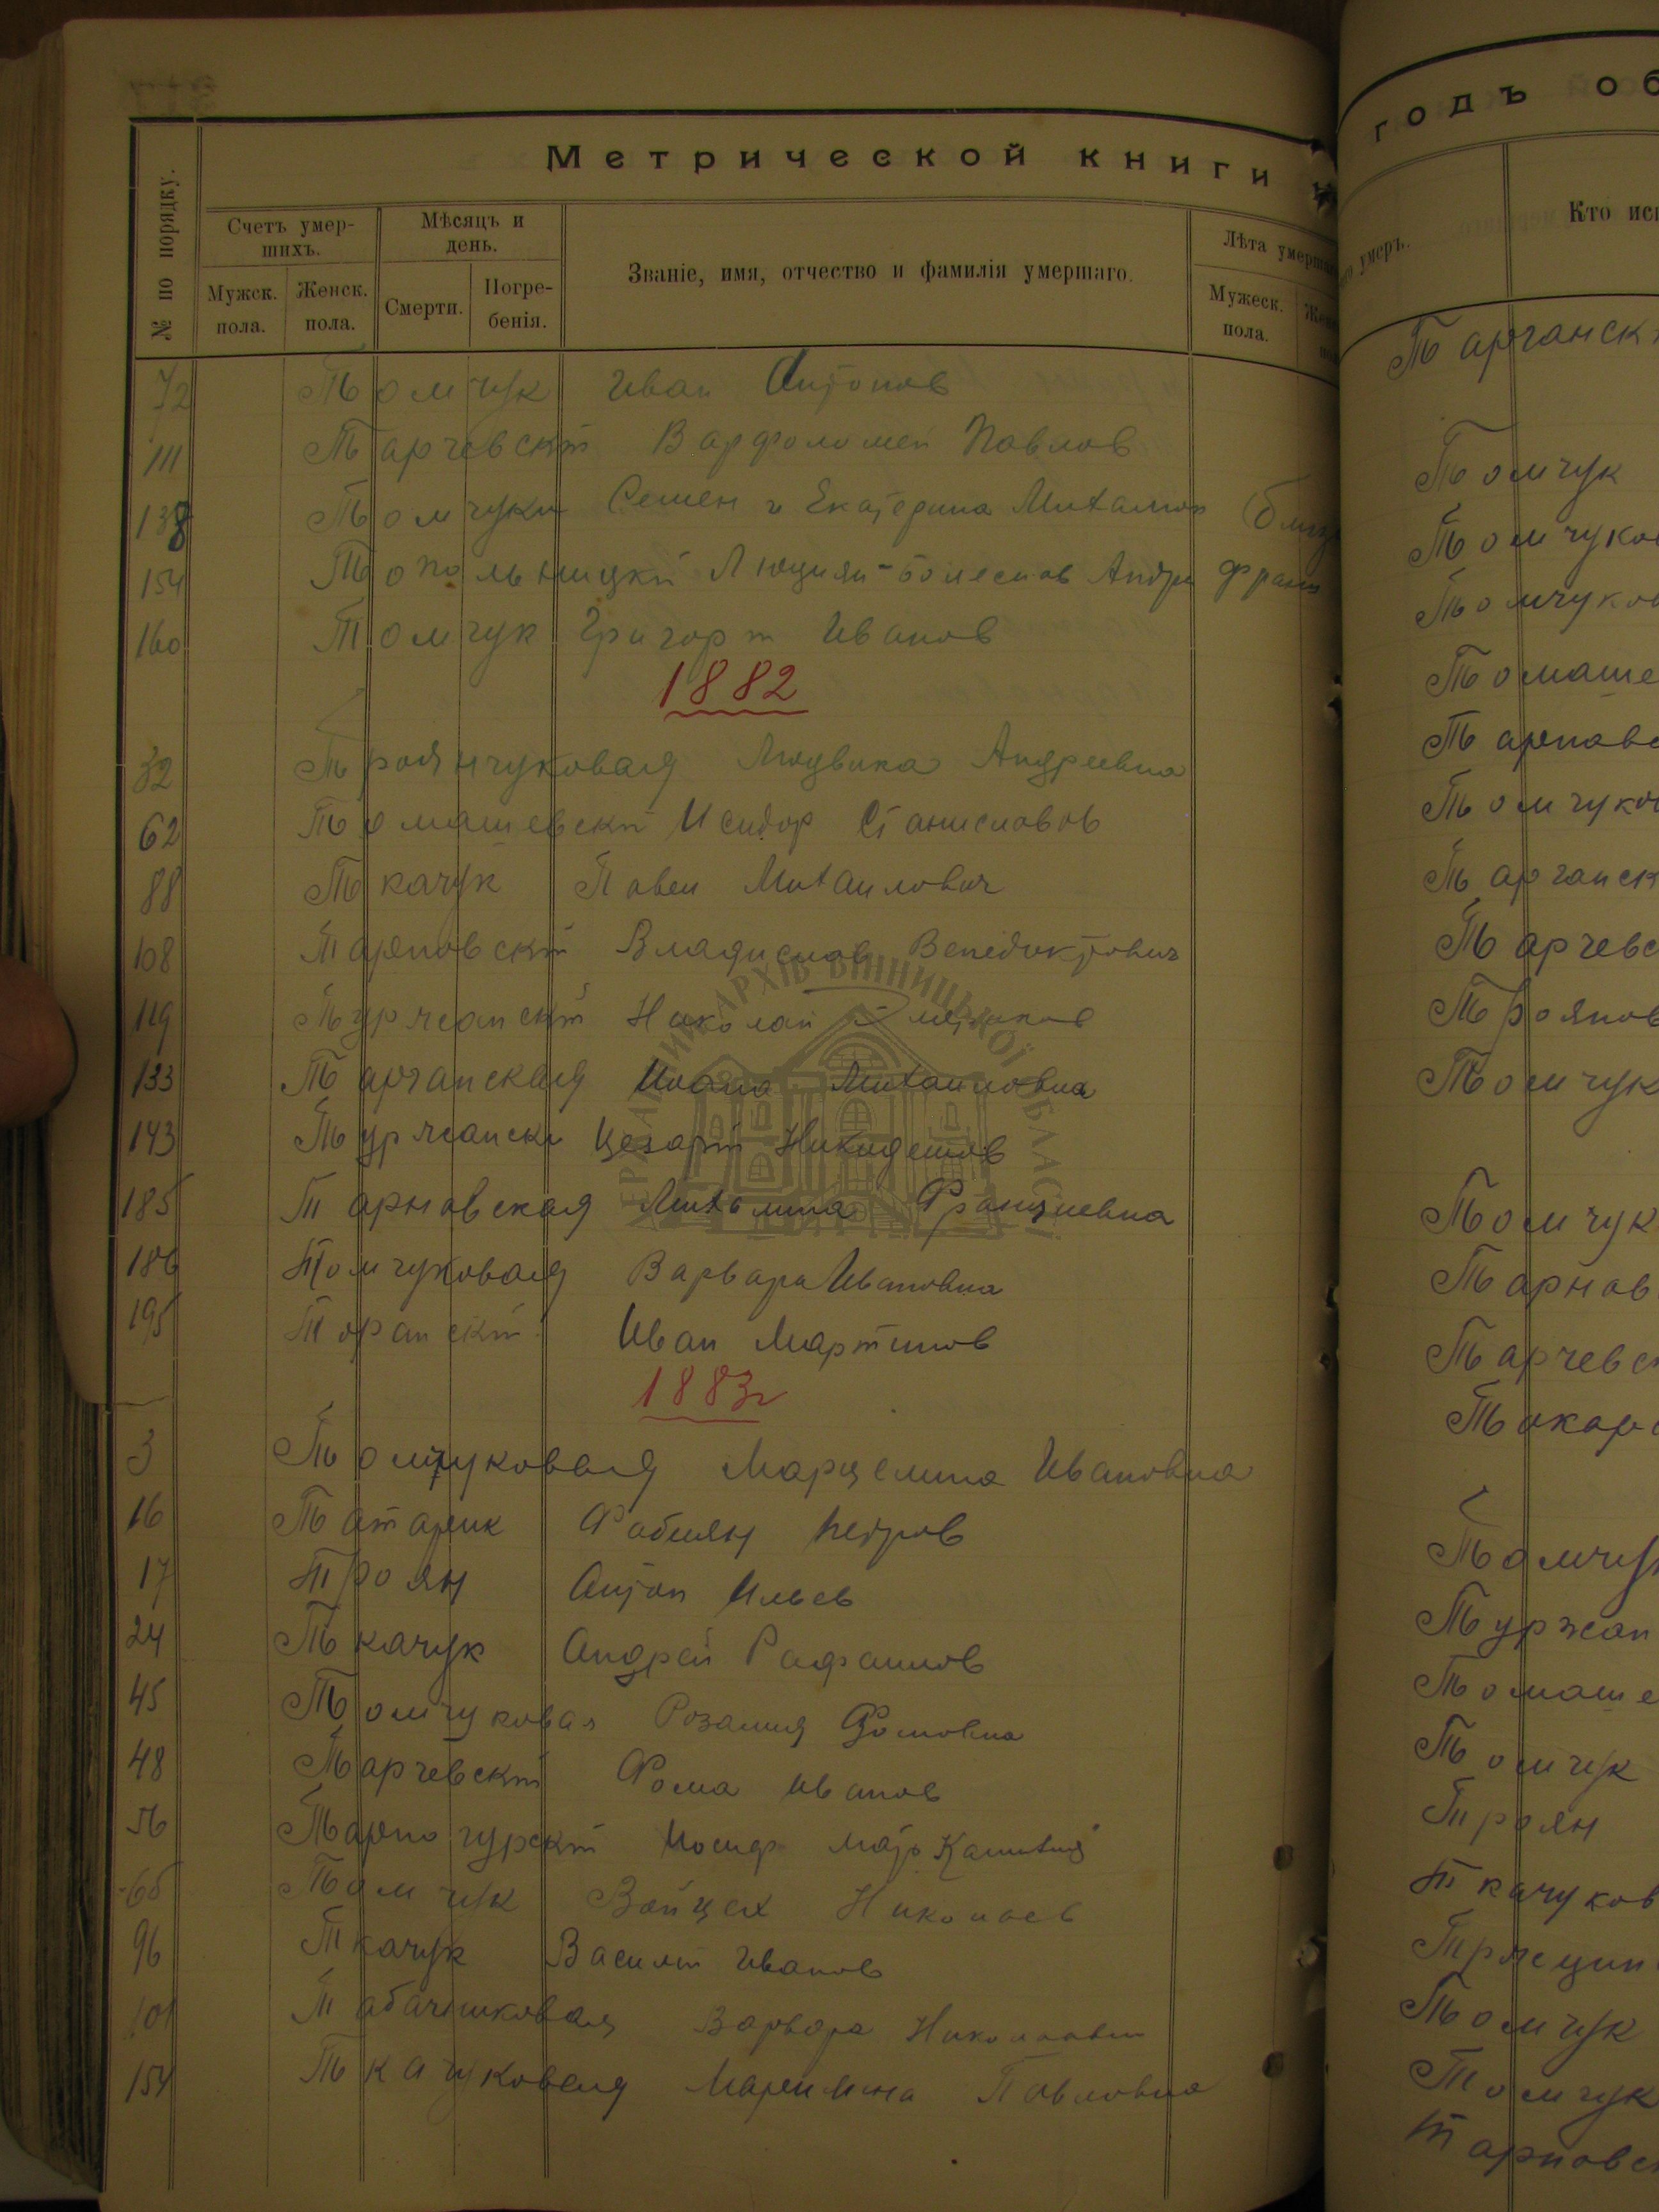 Метрической книги
№ по порядку.
Счетъ умер-
шихъ.
Мужск.
пола.
Женск.
пола.
Мѣсяцъ и
день.
Смерти.
Погре-
бенія.
Званіе, имя, отчество и фамилія умершаго.
Лѣта умерша
Мужеск.
пола.
72 Томчук Иван Антонов
111 Тарчевскій Варфоломей Павлов
138 Томчуки Семен и Екатерина Михайлов (близ
154 Топольницкій Люциян-Болеслав Андре Франц
160 Томчук Григорій Иванов
1882
32 Троянчуковая Людвика Андреевна
62 Томашевскій Исидор Станиславов
88 Ткачук Павел Михаилович
108 Тарновскій Владислав Венедиктович
119 Туржанскій Николай
133 Тарганская Иоана Михаиловна
143 Туржански Цезарій
185 Тарновская Францишевна
186 Томчуковая Варвара Ивановна
195 Торанскій Иван Мартинов
1883г
3 Томчуковая Марцелина Ивановна
16 Татарик Фабиян Петров
17 Троян Антон Ильев
24 Ткачук Андрей Рафаилов
45 Томчуковая Розалия Фомовна
48 Тарчевскій Фома Иванов
56 Тарногурскій Иосиф
66 Томчук Войцех Николаев
96 Ткачук Василій Иванов
101 Табачниковая Варвара
154 Ткачуковая Марцелина Павловна
годъ об
умеръ.
Кто исп
Тарганск
Томчук
Томчуков
Томчуков
Томаше
Тарнавс
Томчуков
Тарганск
Тарчевс
Троянов
Томчук
Томчук
Тарнов
Тарчевск
Токар
Томчук
Туржан
Томаше
Томчук
Троян
Ткачуков
Томчук
Томчук
Тарновс
ДЕРЖАВНИЙ АРХІВ ВІННИЦЬКОЇ ОБЛАСТІ